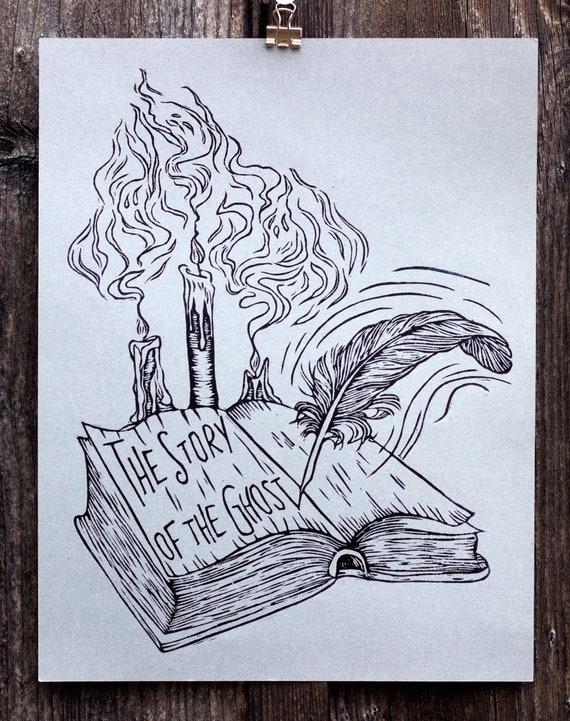 THE STORY
OF THE GHOST